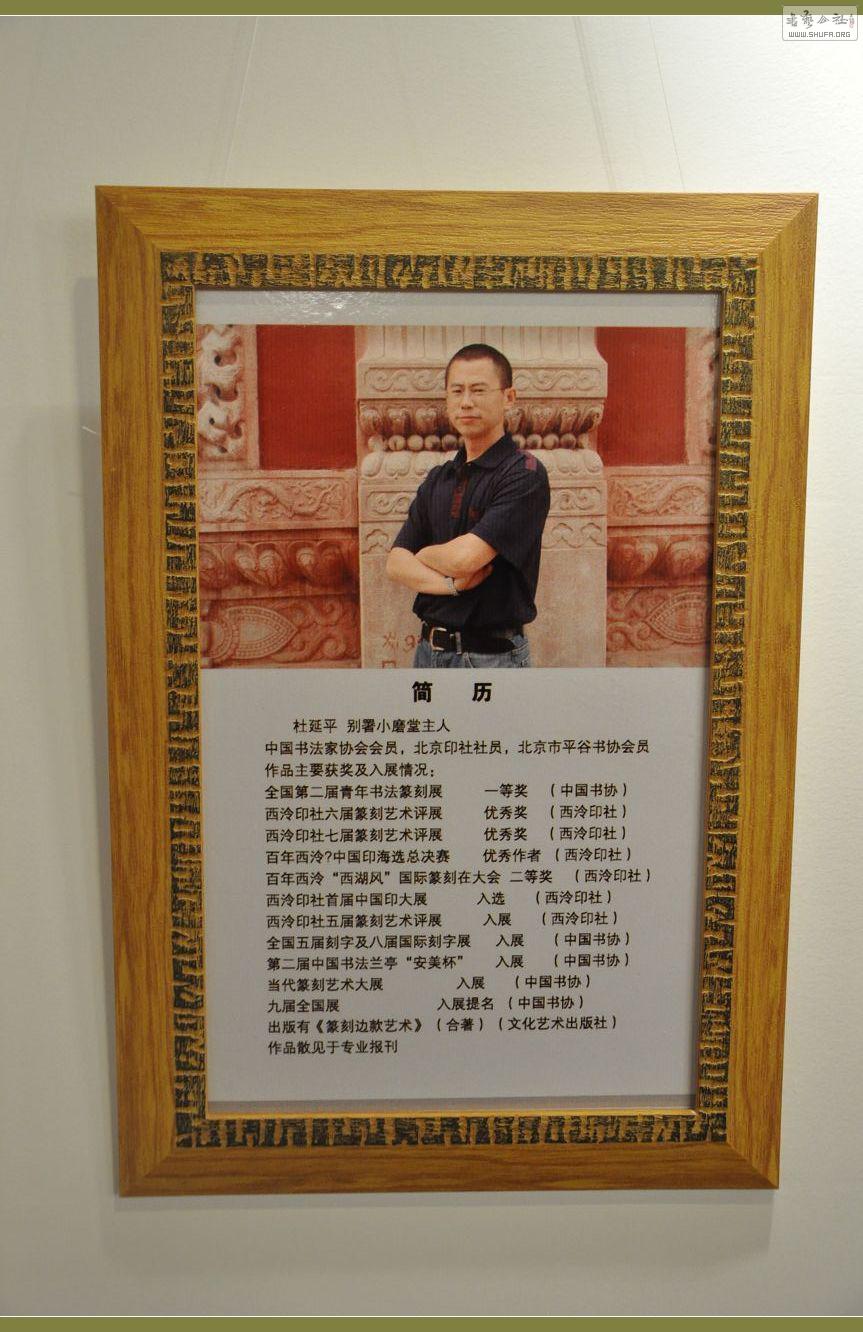 书艺公社
WWW.SHUFA.ORG
简 历
杜延平 别署小磨堂主人
中国书法家协会会员，北京印社社员，北京市平谷书协会员
作品主要获奖及入展情况：
全国第二届青年书法篆刻展 一等奖 （中国书协）
西泠印社六届篆刻艺术评展 优秀奖 （西泠印社）
西泠印社七届篆刻艺术评展 优秀奖 （西泠印社）
百年西泠?中国印海选总决赛 优秀作者 （西泠印社）
百年西泠“西湖风”国际篆刻在大会 二等奖 （西泠印社）
西泠印社首届中国印大展 入选 （西泠印社）
西泠印社五届篆刻艺术评展 入展 （西泠印社）
全国五届刻字及八届国际刻字展 入展 （中国书协）
第二届中国书法兰亭“安美杯” 入展 （中国书协）
当代篆刻艺术大展 入展 （中国书协）
九届全国展 入展提名 （中国书协）
出版有《篆刻边款艺术》（合著）（文化艺术出版社）
作品散见于专业报刊